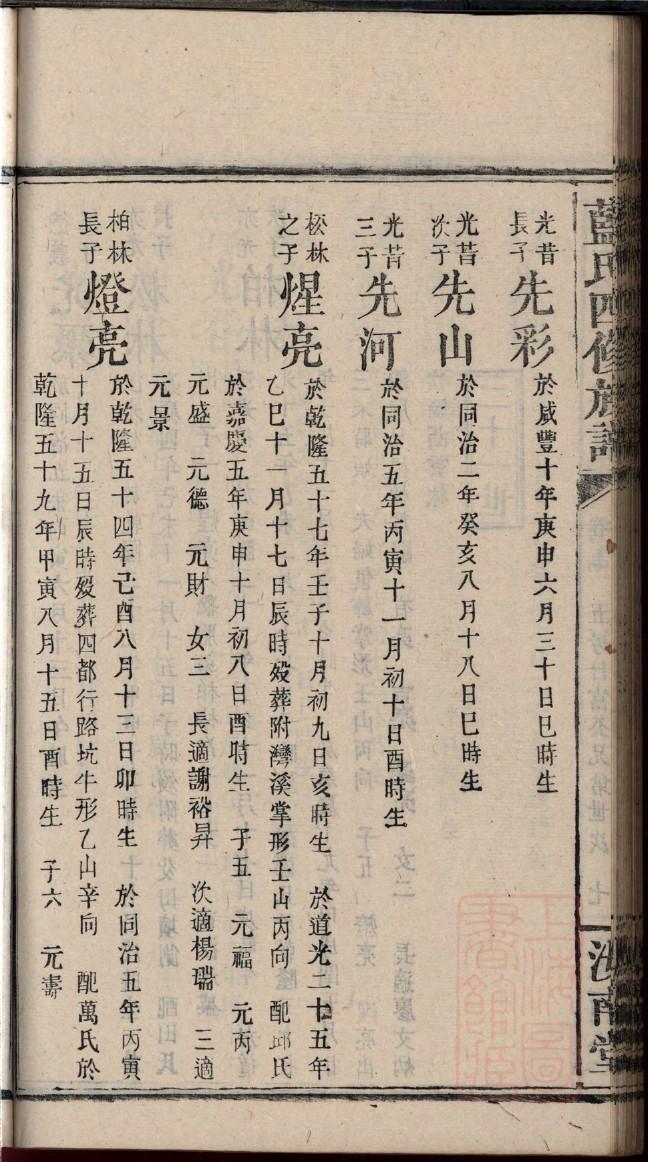 藍氏四修族譜
卷七 五房仕富公兄弟世次 七
汝南堂
光昔長子 先彩 於咸豐十年庚申六月三十日巳時生
光昔次子 先山 於同治二年癸亥八月十八日巳時生
光昔三子 先河 於同治五年丙寅十一月初十日酉時生
松林之子 煋亮 於乾隆五十七年壬子十月初九日亥時生 於道光二十五年
乙巳十一月十七日辰時殁葬附灣溪掌形壬山丙向 配邱氏
於嘉慶五年庚申十月初八日酉時生 子五 元福 元丙
元盛 元德 元財 女三 長適謝裕昇 次適楊瑞 三適
元景
柏林長子 燈亮 於乾隆五十四年己酉八月十三日卯時生 於同治五年丙寅
十月十五日辰時殁葬四都行路坑牛形乙山辛向 配萬氏於
乾隆五十九年甲寅八月十五日酉時生 子六 元壽